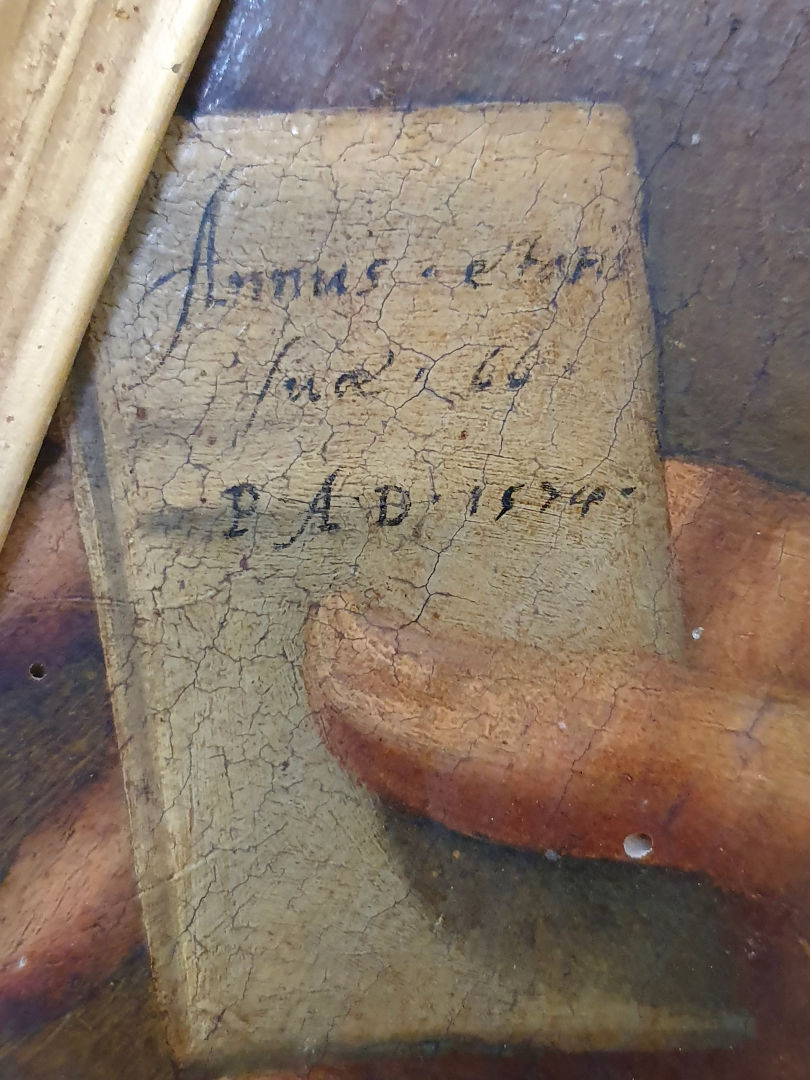 Annus · etatis
suæ · 66 ·
P A D · 1574 ·